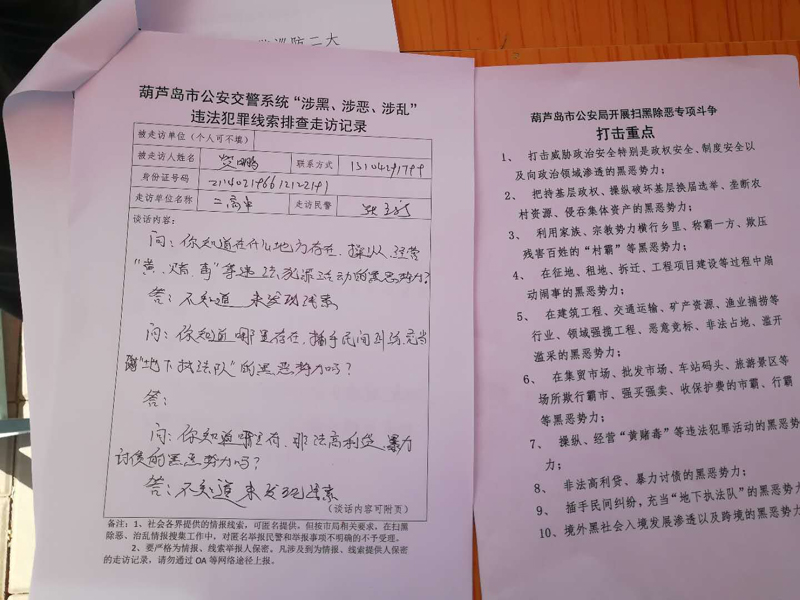 防二大
葫芦岛市公安交警系统“涉黑、涉恶、涉乱”
违法犯罪线索排查走访记录
被走访单位（个人可不填）
被走访人姓名
联系方式
15104291799
身份证号码
211402196612122191
走访单位名称
二高中
走访民警
谈话内容：
问：你知道在什么地方存在、操纵、经营
“黄、赌、毒”等违法犯罪活动的黑恶势力？
答：不知道 未发现线索
问：你知道哪里存在，插手民间纠纷，充当
“地下执法队”的黑恶势力吗？
答：
问：你知道哪里有，非法高利贷、暴力
讨债的黑恶势力吗？
答：不知道 未发现线索
（谈话内容可附页）
备注：1、社会各界提供的情报线索，可匿名提供。但按市局相关要求，在扫黑
除恶、治乱情报搜集工作中，对匿名举报民警和举报事项不明确的不予受理。
2、要严格为情报、线索举报人保密。凡涉及到为情报、线索提供人保密
的走访记录，请勿通过 OA 等网络途径上报。
葫芦岛市公安局开展扫黑除恶专项斗争
打击重点
1、 打击威胁政治安全特别是政权安全、制度安全以
及向政治领域渗透的黑恶势力；
2、 把持基层政权、操纵破坏基层换届选举、垄断农
村资源、侵吞集体资产的黑恶势力；
3、 利用家族、宗教势力横行乡里、称霸一方、欺压
残害百姓的“村霸”等黑恶势力；
4、 在征地、租地、拆迁、工程项目建设等过程中扇
动闹事的黑恶势力；
5、 在建筑工程、交通运输、矿产资源、渔业捕捞等
行业、领域强揽工程、恶意竞标、非法占地、滥开
滥采的黑恶势力；
6、 在集贸市场、批发市场、车站码头、旅游景区等
场所欺行霸市、强买强卖、收保护费的市霸、行霸
等黑恶势力；
7、 操纵、经营“黄赌毒”等违法犯罪活动的黑恶势
力；
8、 非法高利贷、暴力讨债的黑恶势力；
9、 插手民间纠纷，充当“地下执法队”的黑恶势
10、境外黑社会入境发展渗透以及跨境的黑恶势